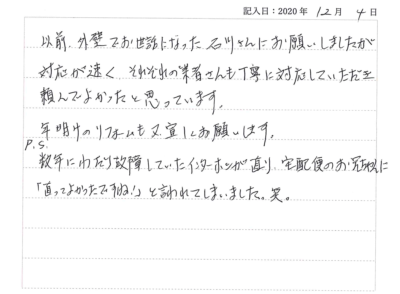 記入日：2020年 12月 4日
以前、外壁でお世話になった石川さんにお願いしましたが
対応が速く、それぞれの業者さんも丁寧に対応していただき
頼んでよかったと思っています。
年明けのリフォームも又宜しくお願いします。
P.S.
数年にわたり故障していたインターホンが直り、宅配便のお兄様に
「直ってよかったですね!」と言われてしまいました。笑。